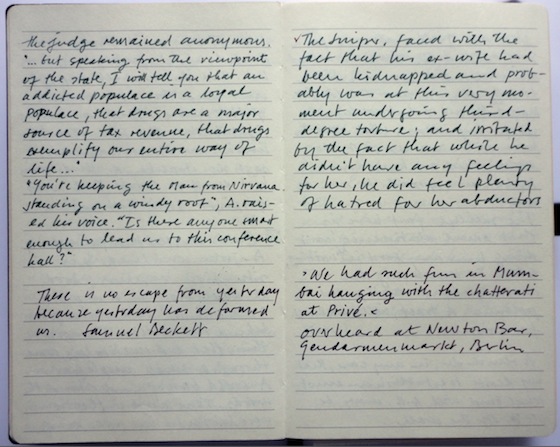 the judge remained anonymous.
"...but speaking from the viewpoint
of the state, I will tell you that an
addicted populace is a loyal
populace, that drugs are a major
source of tax revenue, that drugs
exemplify our entire way of
life..."
"You're keeping the man from Nirvana
standing on a windy roof", A. rais-
ed his voice. "Is there anyone smart
enough to lead us to this conference
hall?"
There is no escape from yesterday
because yesterday has deformed
us. Samuel Beckett
The Sniper, faced with the
fact that his ex-wife had
been kidnapped and prob-
ably was at this very mo-
ment undergoing third-
degree torture; and irritated
by the fact that while he
didn't have any feelings
for her, he did feel plenty
of hatred for her abductors
>We had such fun in Mum-
bai hanging with the chatterati
at Privé.<
overheard at Newton Bar,
Gendarmenmarkt, Berlin